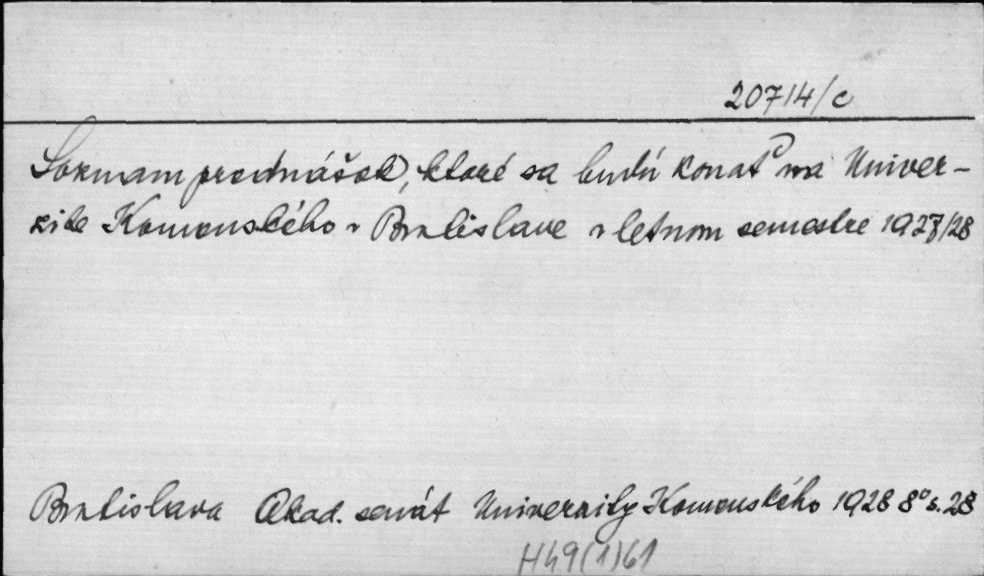 20714/c
Soznam prednášok, ktoré sa budú konať na Univer-
zite Komenského v Bratislave v letnom semestre 1927/28
Bratislava Akad. senát Univerzity Komenského 1928 8° s. 28
H49(1)61